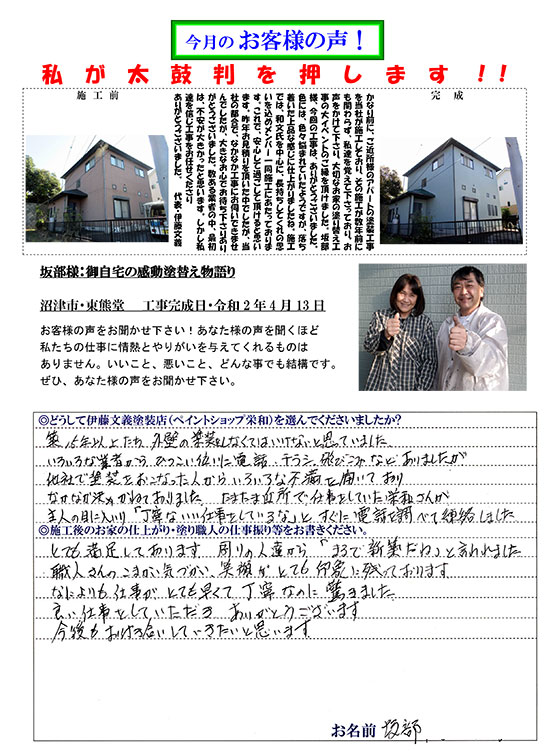 今月の お客様の声！
私が太鼓判を押します!!
施工前
完成
かなり前に、ご近所様のアパートの塗装工事
を当社が施工しており、その施工が数年前に
も関わらず、私達を覚えて下さっており、お
声をかけて下さり、大切なお家の塗り替え工
事の大イベントのご縁を頂けました、坂部
様、今回の工事は、ありがとうございました。
色には、色々悩まれていたようですが、落ち
着いた上品な感じに仕上がりましたね、施工
では、和文氏を中心に、長持ちしてくれの思
いを込めメンバー一同施工にあたっております
す。これで、安心して過ごして頂けると思い
ます。昨年お見積りを頂いた中でしたが、当
社の都合で、なかなか工事にお伺いできませ
んでしたが、大きなお心でお待ち下さいあり
がとうございました。数ある業者の中、最初
は、不安が大きかったと思います。しかし私
達を信じ工事をお任せくださり
ありがとうございました。 代表・伊藤文義
坂部様:御自宅の感動塗替え物語り
沼津市・東熊堂 工事完成日・令和２年４月１３日
お客様の声をお聞かせ下さい！あなた様の声を聞くほど
私たちの仕事に情熱とやりがいを与えてくれるものは
ありません。いいこと、悪いこと、どんな事でも結構です。
ぜひ、あなた様の声をお聞かせ下さい。
◎どうして伊藤文義塗装店(ペイントショップ栄和)を選んでくださいましたか?
築15年以上たち、外壁の塗装をしなくてはいけないと思っていました
いろいろな業者から、ひつこい位いに電話、チラシ、飛びこみなどありましたが
他社で塗装をおこなった人からいろいろな不満を聞いており
なかなか決めかねておりました。たまたま近所で仕事をしていた栄和さんが
主人の目に入り「丁寧ないい仕事をしているな」と、すぐに電話を調べて連絡しました
◎施工後のお家の仕上がり・塗り職人の仕事振り等をお書きください。
とても満足してあります 周りの人達から「まるで新築だね」と言われました
職人さんのこまかい気づかい、笑顔が とても印象に残っております
なによりも仕事が とても早くて 丁寧なのに 驚きました
良い仕事をしていただき ありがとうございます
今後も お付き合いしていきたいと思います
お名前 坂部